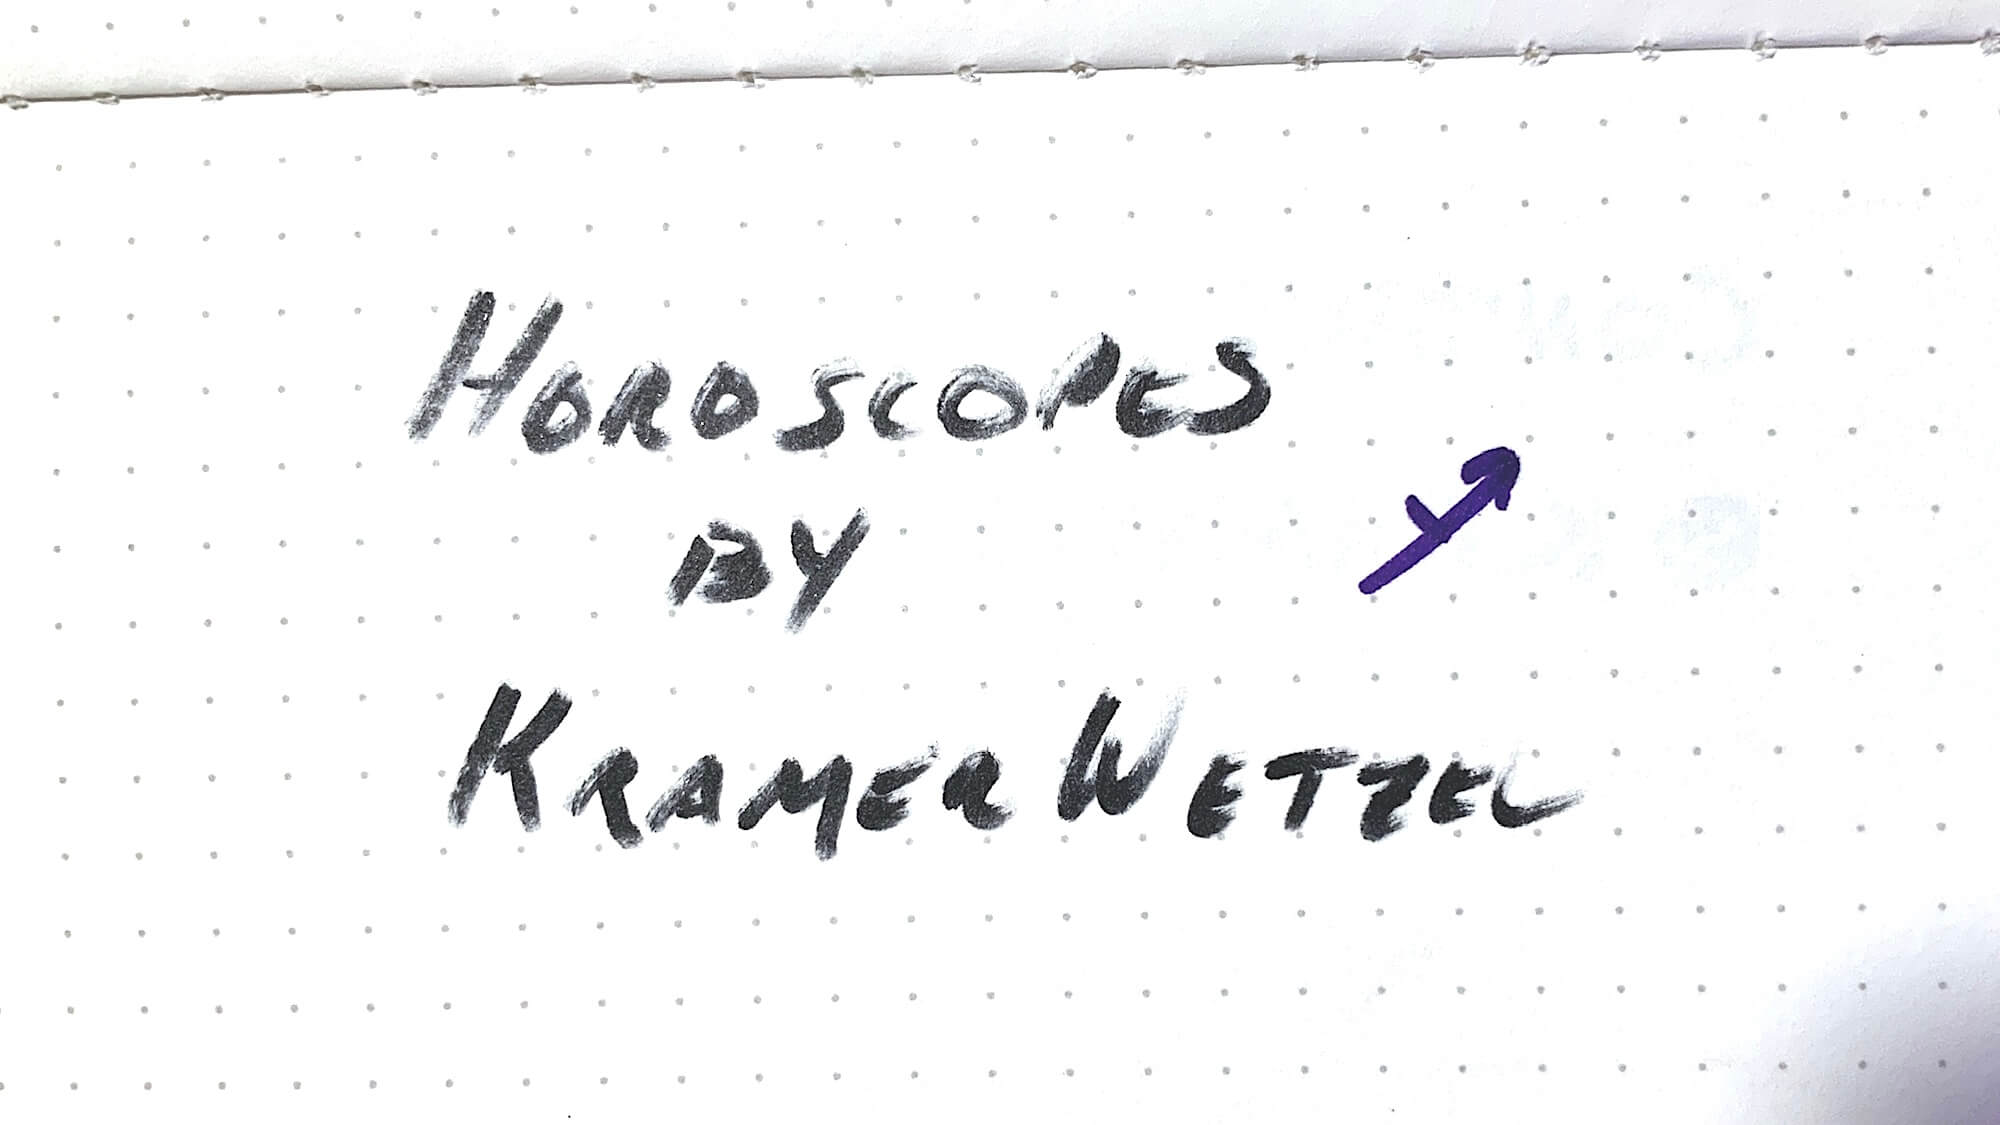 HOROSCOPES
BY
KRAMER WETZEL